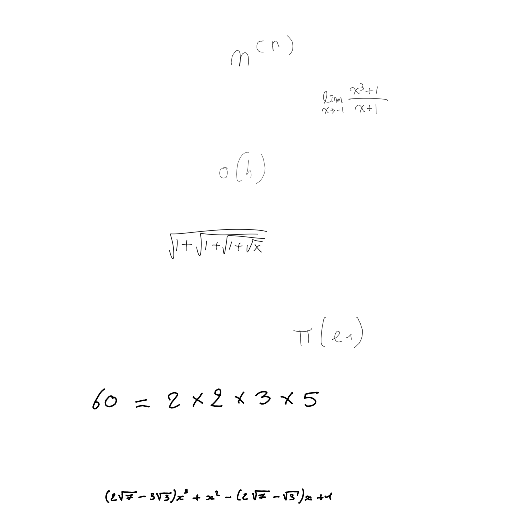 n^{(n)}
\lim_{x \to -1} \frac{x^3+1}{x+1}
o(h)
\sqrt{1+\sqrt{1+\sqrt{1+\sqrt{x}}}}
\pi(e_1)
60 = 2 × 2 × 3 × 5
(2\sqrt{7} - 3\sqrt{3})x^3 + x^2 - (2\sqrt{7} - \sqrt{3})x + 1